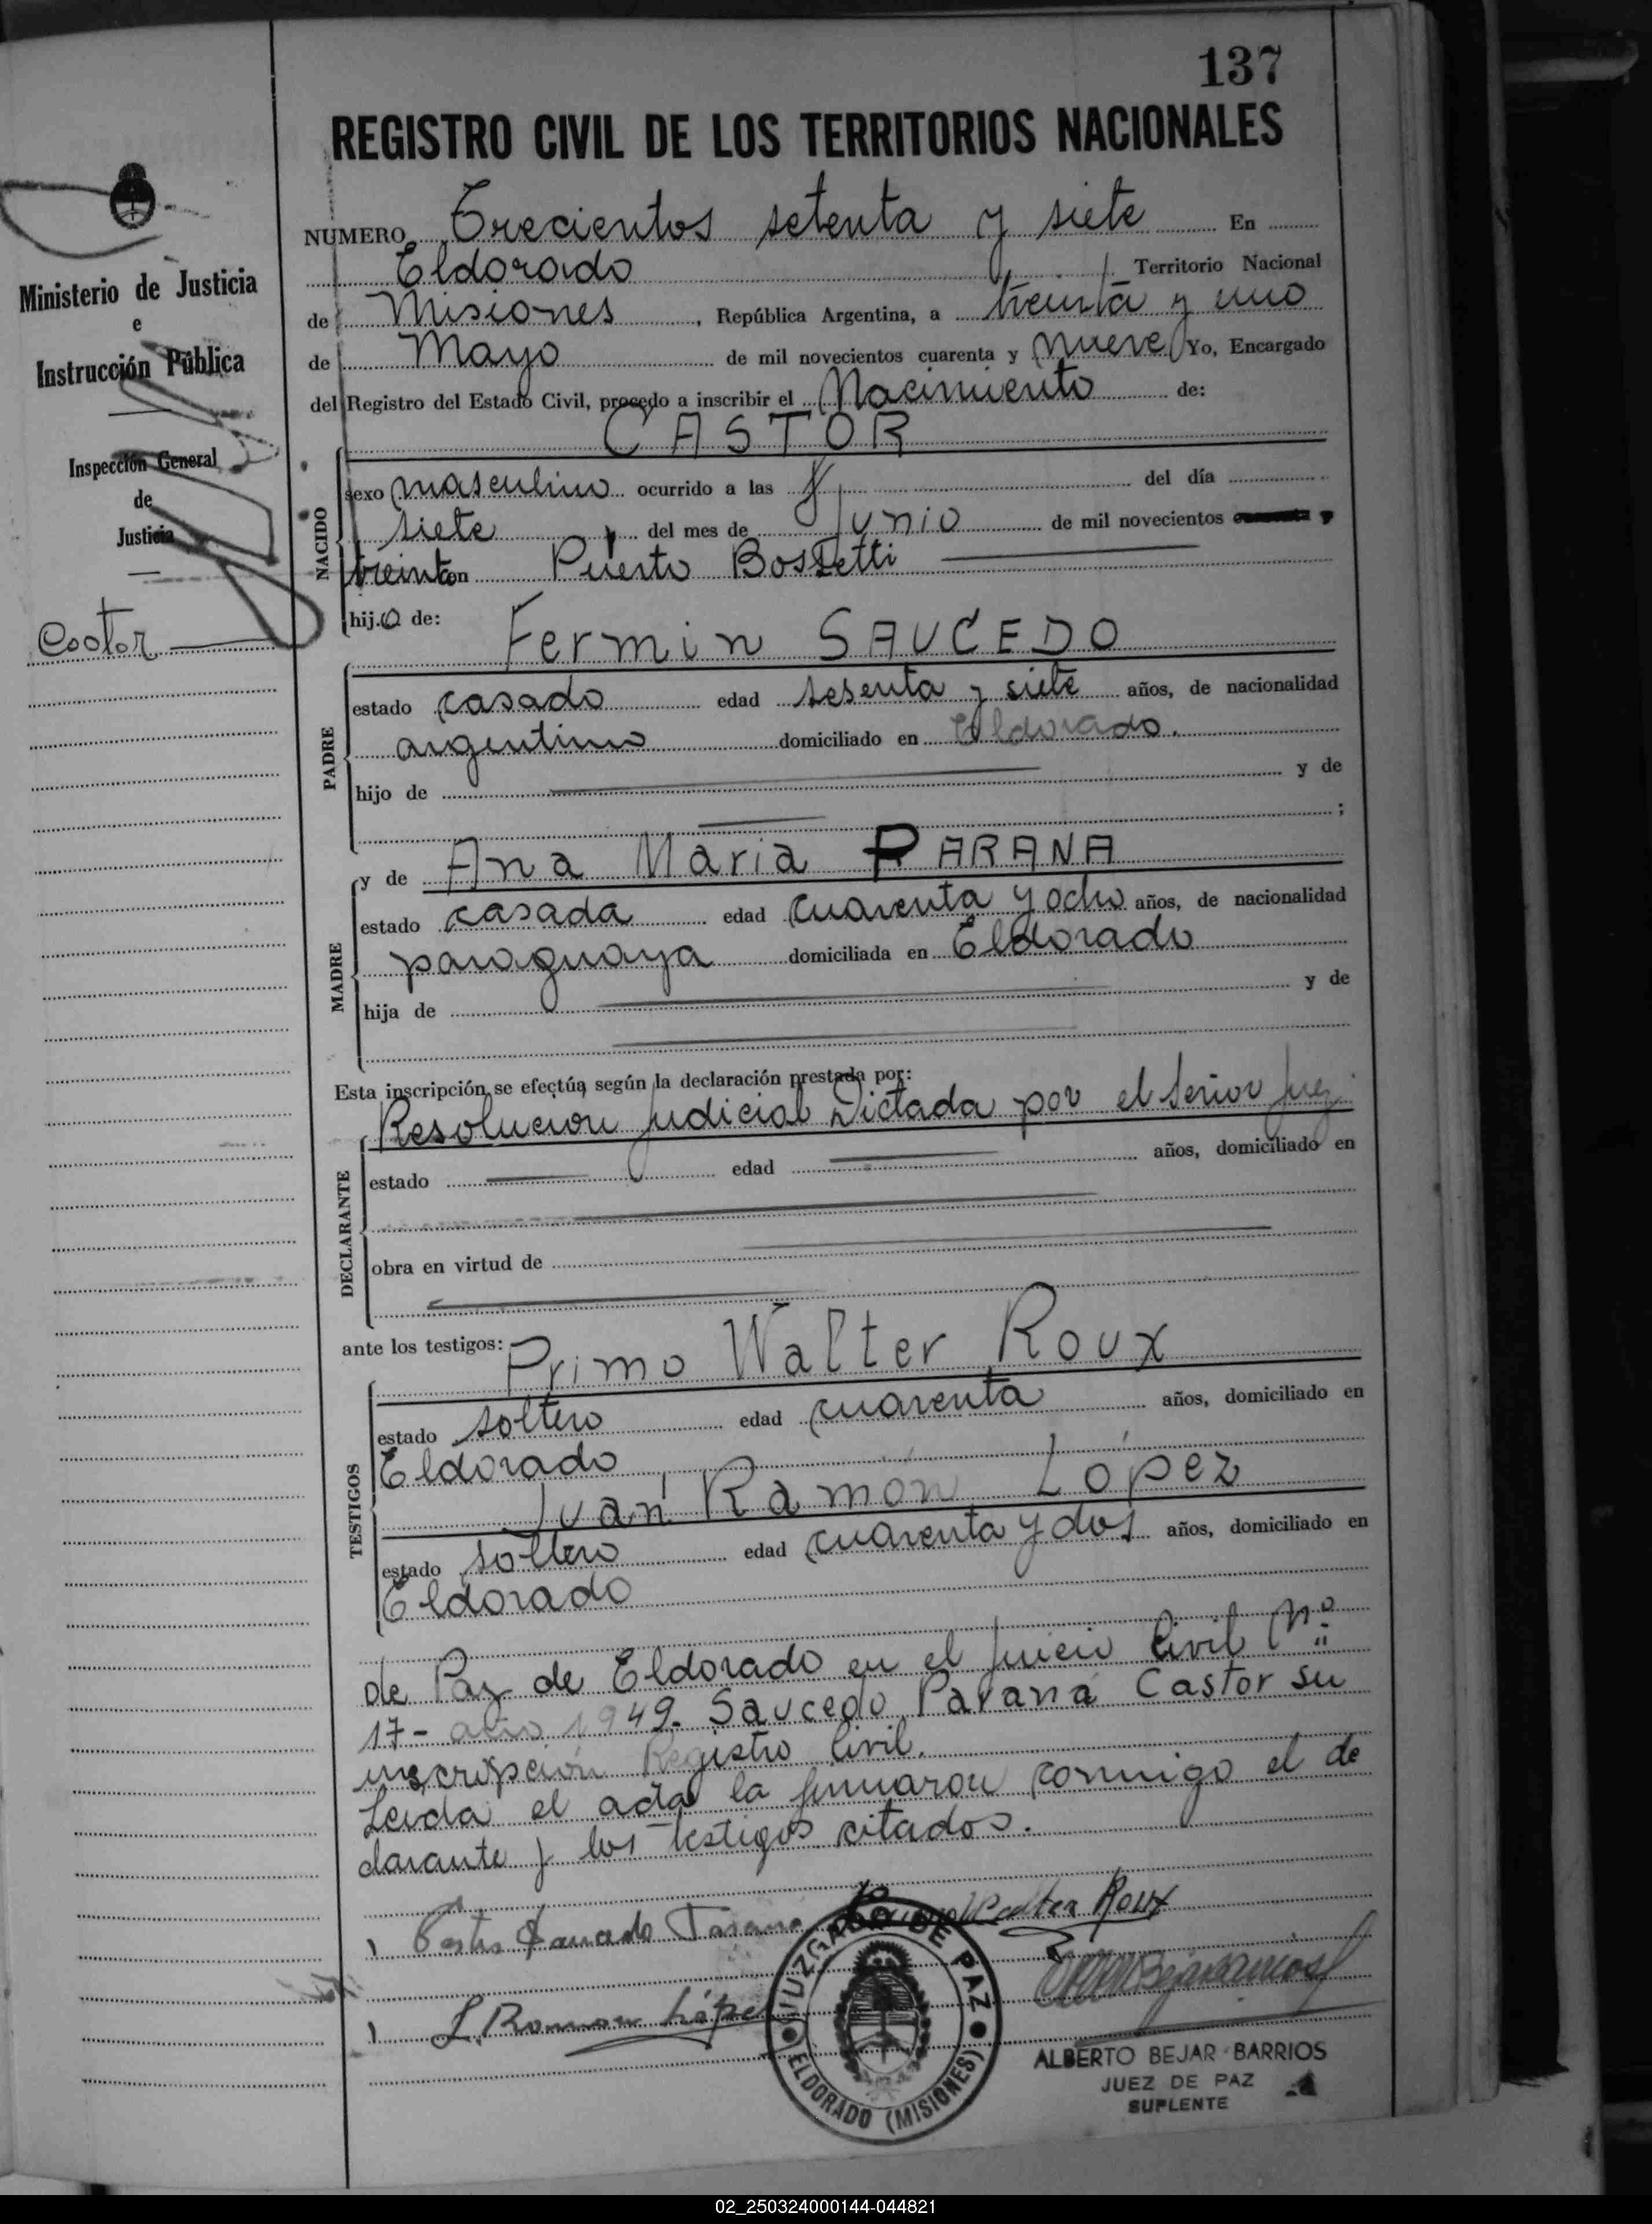 137
REGISTRO CIVIL DE LOS TERRITORIOS NACIONALES
Ministerio de Justicia
e
Instrucción Pública
Inspección General
de
Justicia
Castor
NUMERO Trecientos setenta y siete En
Eldorado Territorio Nacional
de Misiones, República Argentina, a treinta y uno
de Mayo de mil novecientos cuarenta y nueve Yo, Encargado
del Registro del Estado Civil, procedo a inscribir el Nacimiento de:
CASTOR
NACIDO
sexo masculino ocurrido a las del día
siete del mes de Junio de mil novecientos
treinta en Puerto Bossetti
hijo de:
Fermin SAUCEDO
PADRE
estado casado edad sesenta y siete años, de nacionalidad
argentino domiciliado en Eldorado.
hijo de y de
;
y de Ana Maria PARANA
MADRE
estado casada edad cuarenta y ocho años, de nacionalidad
paraguaya domiciliada en Eldorado
hija de y de
Esta inscripción se efectúa según la declaración prestada por:
Resolucion Judicial Dictada por el Señor Juez
DECLARANTE
estado edad años, domiciliado en
obra en virtud de
ante los testigos:
Primo Walter Roux
TESTIGOS
estado soltero edad cuarenta años, domiciliado en
Eldorado
Juan Ramón López
estado soltero edad cuarenta y dos años, domiciliado en
Eldorado
de Paz de Eldorado en el Juicio Civil Nº
17- año 1949. Saucedo Paraná Castor su
inscripción Registro Civil.
Leida el acta la firmaron conmigo el de
clarante y los testigos citados.
Walter Roux
Ramon López
JUZGADO DE PAZ
ELDORADO (MISIONES)
ALBERTO BEJAR BARRIOS
JUEZ DE PAZ
SUPLENTE
02_250324000144-044821